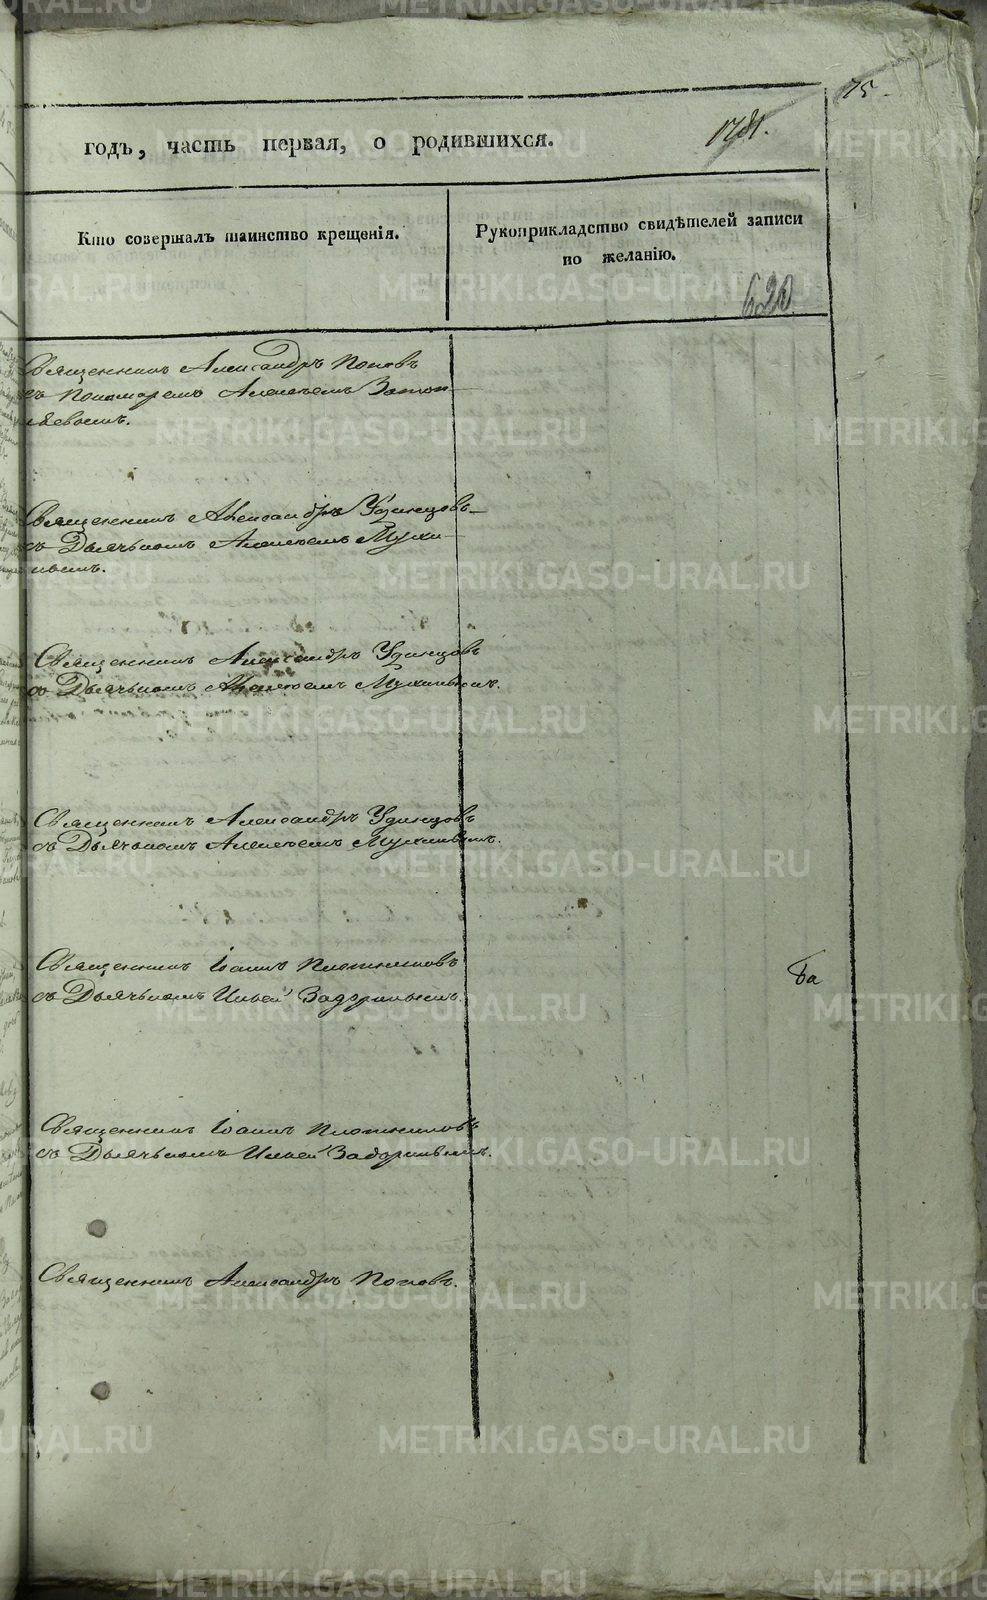 75.
годъ, часть первая, о родившихся.
Кто совершалъ таинство крещенія.
Рукоприкладство свидѣтелей записи
по желанію.
620
Священникъ Александръ Поповъ
съ Пономаремъ Алексѣемъ
Священникъ Александръ Удинцовъ
съ Дьячкомъ Алексѣемъ Мухи-
нымъ.
Священникъ Александръ Удинцовъ
съ Дьячкомъ Алексѣемъ Мухинымъ.
Священникъ Александръ Удинцовъ
съ Дьячкомъ Алексѣемъ Мухинымъ.
Священникъ Іоаннъ Плотниковъ
съ Дьячкомъ Ильей Задоринымъ.
Священникъ Іоаннъ Плотниковъ
съ Дьячкомъ Ильей Задоринымъ.
Священникъ Александръ Поповъ.
METRIKI.GASO-URAL.RU